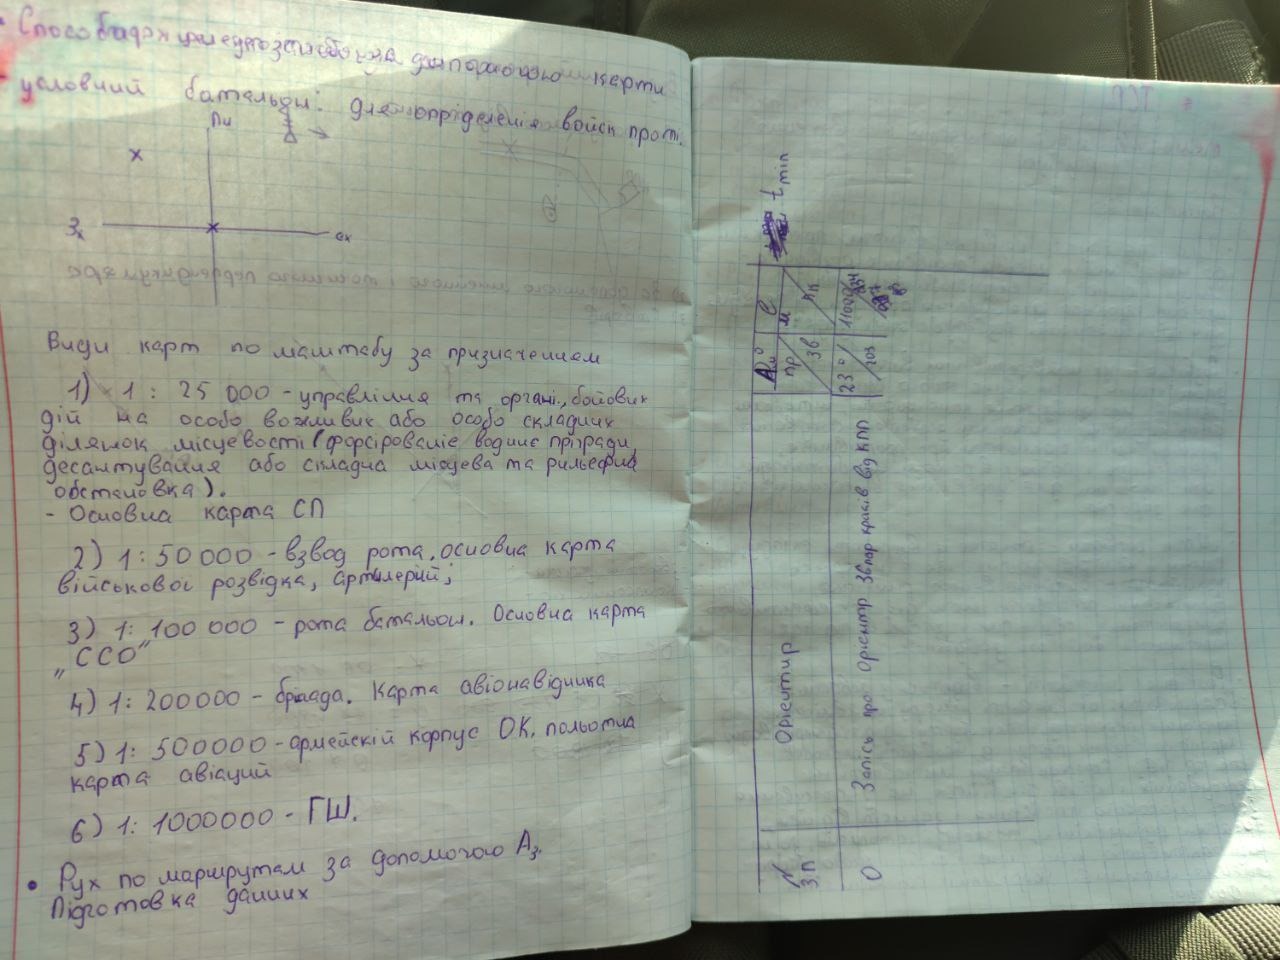 карти
условний батальйон: для опріделенія войск проті.
Пн
Зх
Сх
Види карт по маштабу за призначенням
1) 1 : 25 000 - управління та органі., бойових
дій на особо вожливих або особо складних
ділянок місцевості (форсіровеніе водниє прігради,
десантування або складна місцева та рильєфна
обстановка).
- Основна карта СП
2) 1 : 50 000 - взвод рота. основна карта
військової розвідка, артилерий;
3) 1: 100 000 - рота батальон. Основна карта
"ССО"
4) 1: 200000 - бригада. Карта авіонавідника
5) 1: 500000 - армейскій корпус ОК. польотна
карта авіаций
6) 1: 1000000 - ГШ.
• Рух по маршрутам за допомогою Аз.
Підготовка данних
№ З.П
Орієнтир
Ам°
пр
зв
С
м
пк
t min
0
Запісь про Орієнтр від КПП
23°